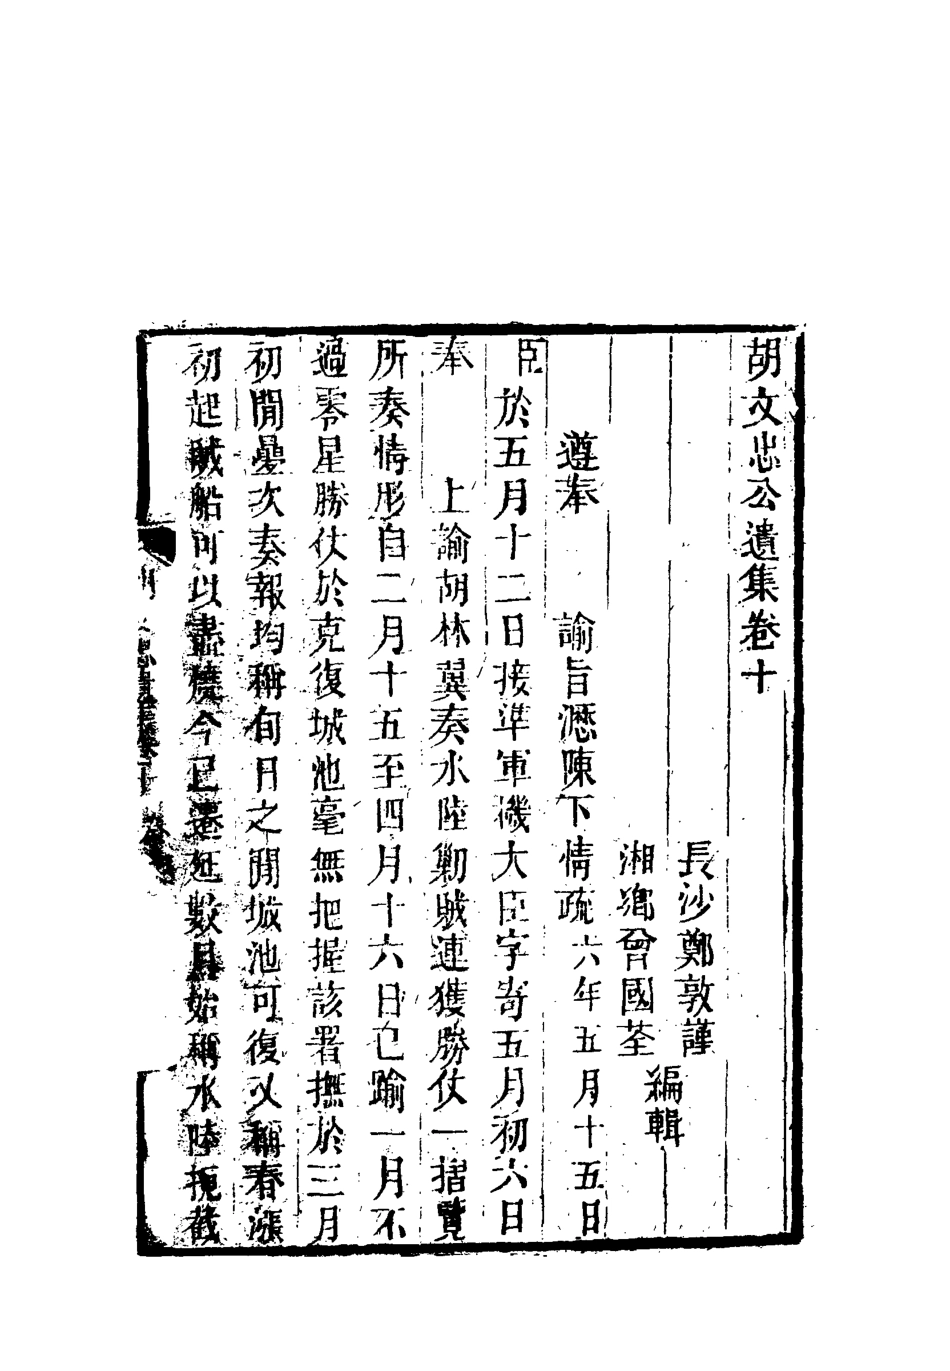 胡文忠公遺集卷十
長沙鄭敦謹
湘鄉曾國荃
編輯
遵奉 諭旨瀝陳下情疏 六年五月十五日
臣於五月十二日接準軍機大臣字寄五月初六日
奉 上諭胡林翼奏水陸勦賊連獲勝仗一摺覽
所奏情形自二月十五至四月十六日已踰一月不
過零星勝仗於克復城池毫無把握該署撫於三月
初閒疊次奏報均稱旬日之閒城池可復又稱春漲
初起賊船可以盡燒今已遷延數月始稱水陸扼截